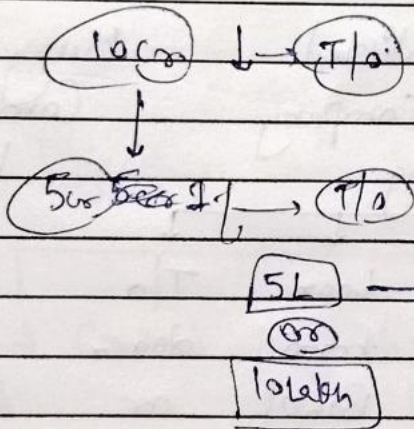 10 Cr ↓ → T/o.
5 cr 1.% → T/o
5L
or
10 Lakh